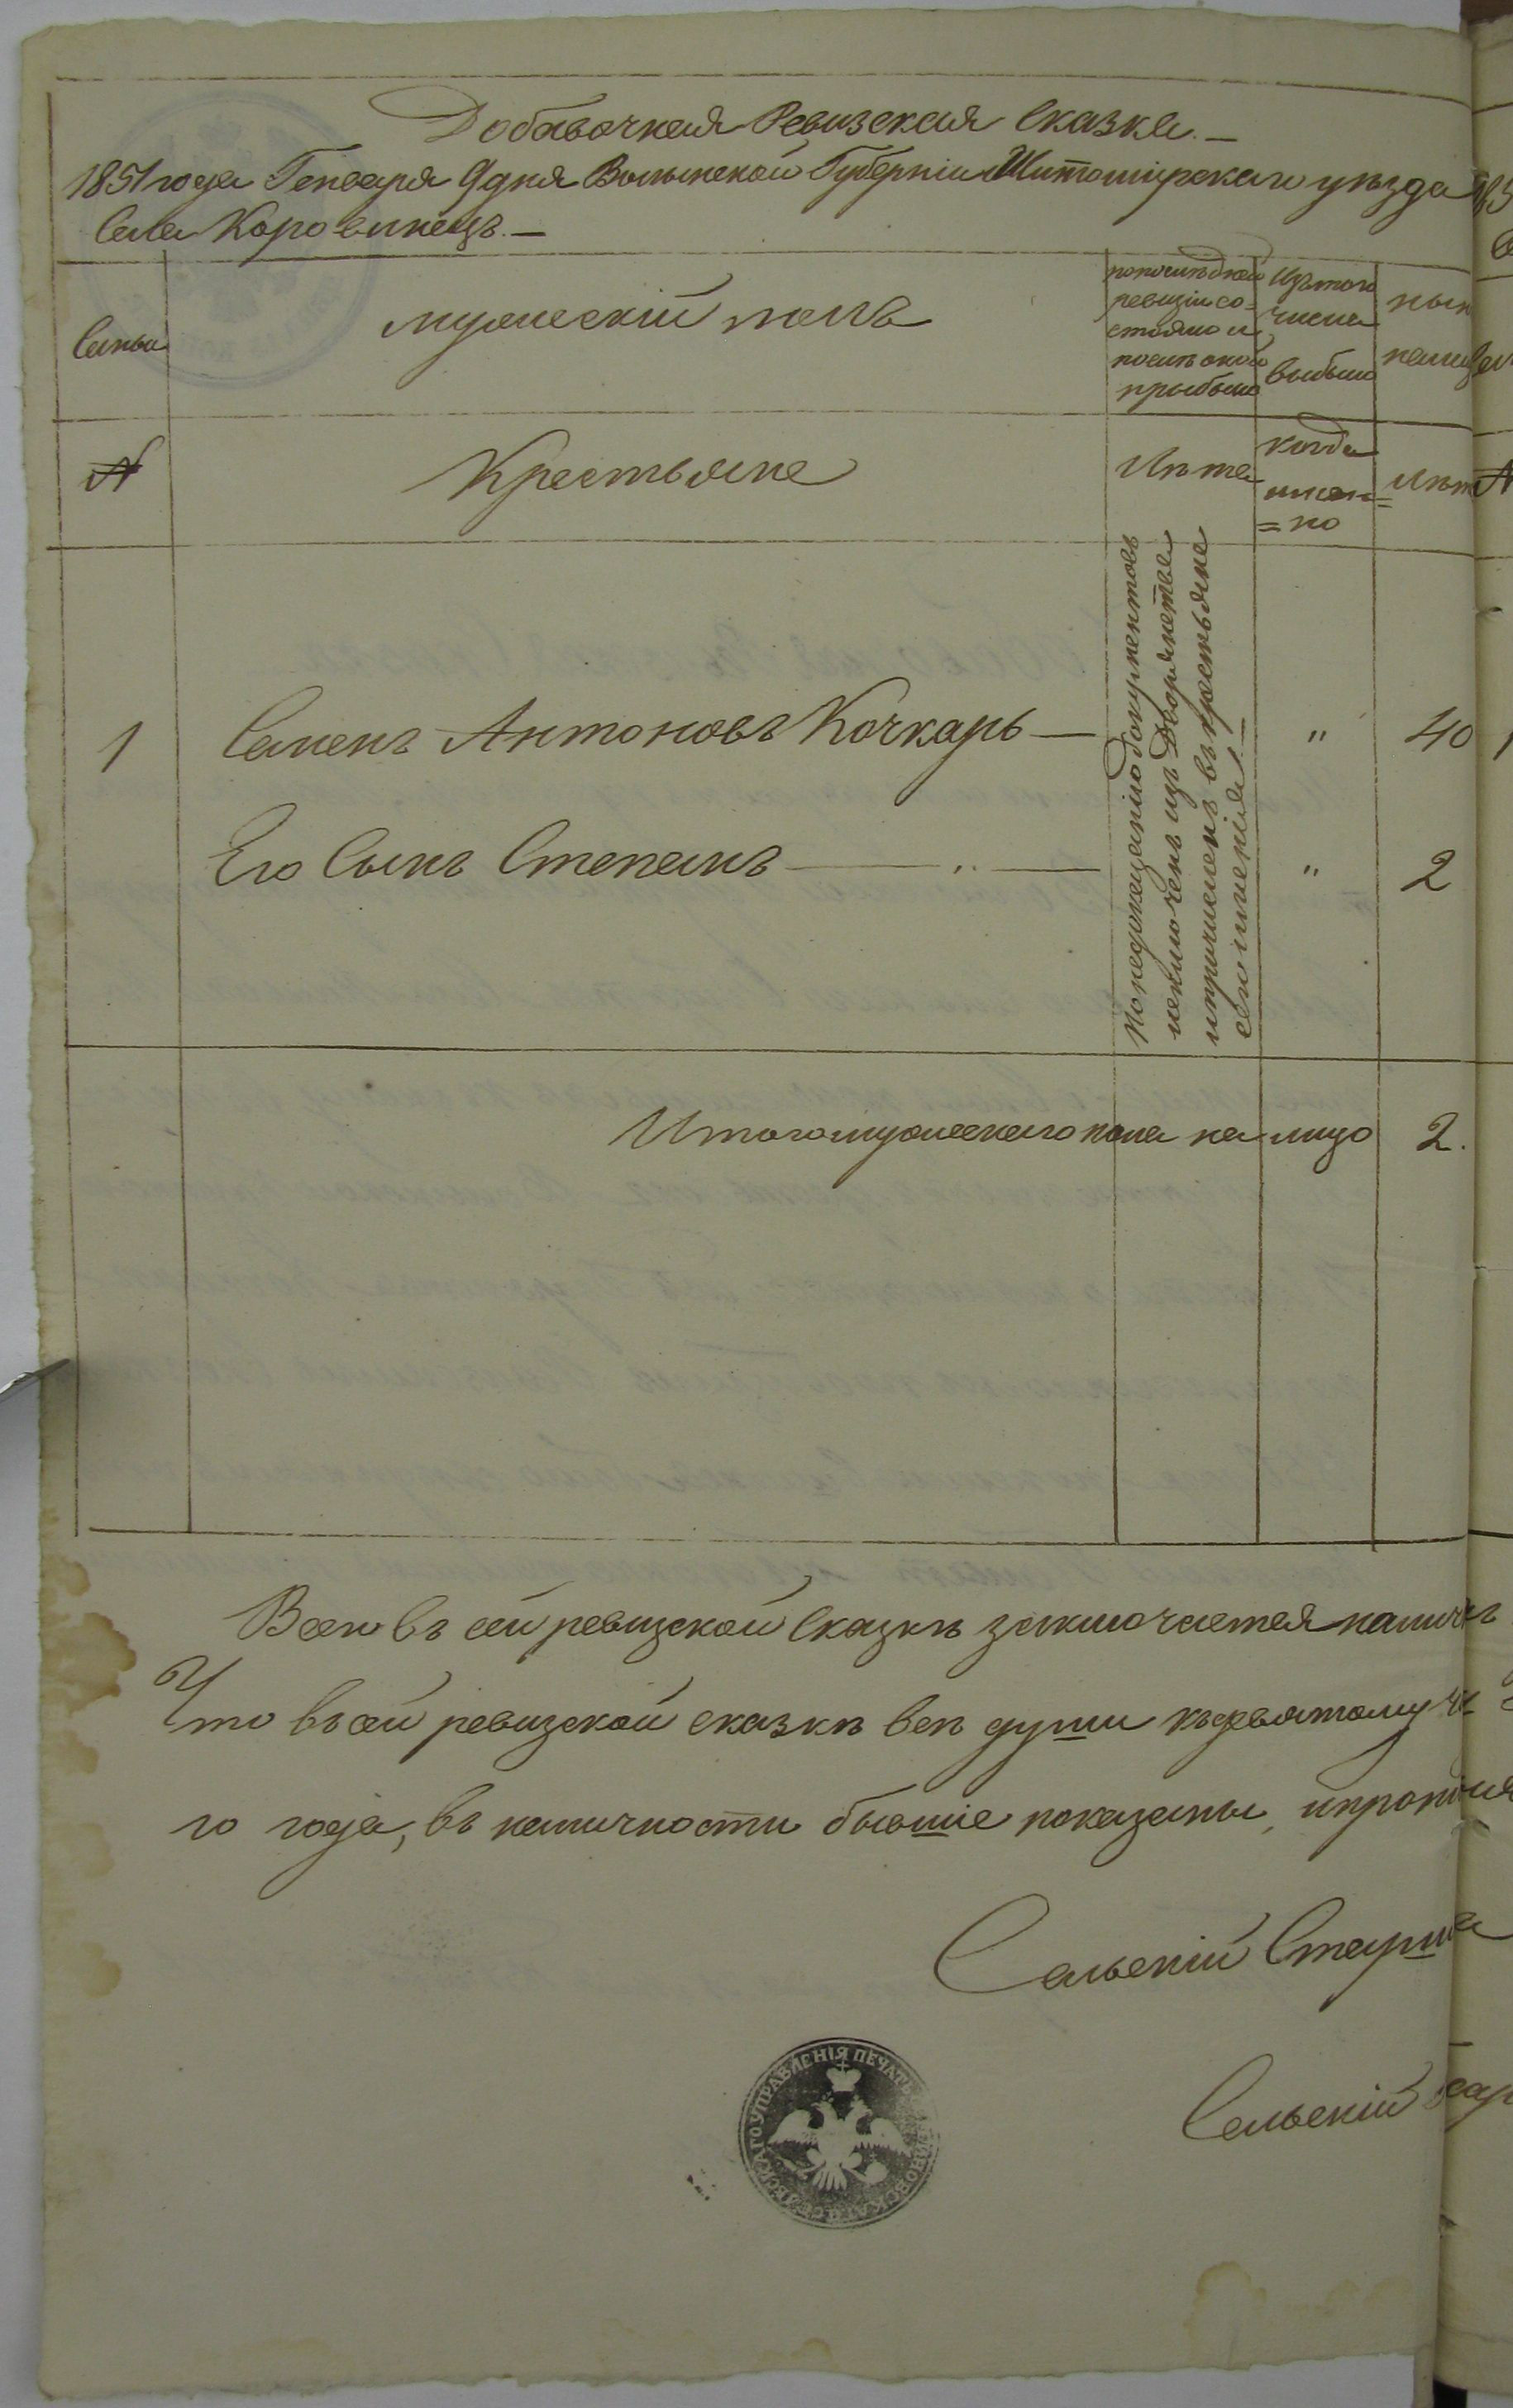 Добавочная Ревизская Сказка.—
1851 года Генваря 9 дня Волынской Губерніи Житомирскаго уѣзда
Села Коровинецъ.—
Семьи
мужескій полъ
по послѣдней
ревизіи со-
стояло и
послѣ оной
прибыло
Изъ того
числа
выбыло
нынѣ
на лицо
№
Крестьяне
Лѣта
когда
имен=
=но
Лѣта
По недоказанію документовъ
исключенъ изъ Дворянства
и причисленъ въ крестьяне
сего имѣнія.—
1 Семенъ Антоновъ Кочкарь — " 40
Его Сынъ Степанъ — " — " 2
Итого мужескаго пола на лицо 2.
Всего въ сей ревизской Сказкѣ заключается налич
Что въ сей ревизской сказкѣ всѣ души къ девятому
го года, въ наличности бывшіе показаны, и пропи
Сельскій Старши
Сельскій
УПРАВЛЕНІЯ ПЕЧАТЬ